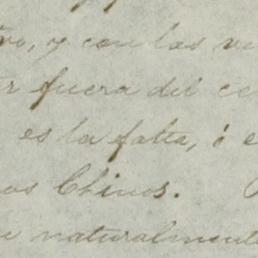 vo, y con las vi
r fuera del ce
es la falta, ó e
os Chinos.
naturalmente